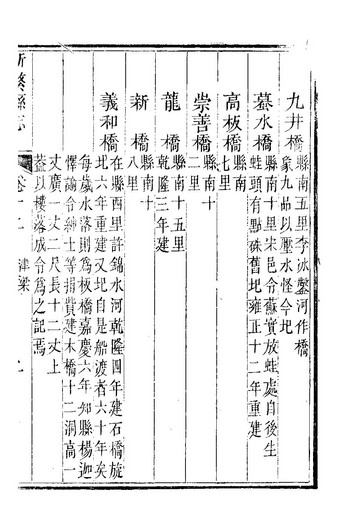 九井橋 縣南五里李冰鑿河作橋
象九品以壓水怪今圮
墓水橋 縣南十里宋邑令蘇實放蛙處自後生
蛙頭有點硃舊圮雍正十二年重建
高板橋 縣南
七里
崇善橋 縣南十
二里
龍橋 縣南十五里
乾隆三年建
新橋 縣南十
八里
義和橋 在縣西里許錦水河乾隆四年建石橋旋
圮六年重建又圮自是船渡者六十年矣
每歲水落則爲板橋嘉慶六年知縣楊迦
懌諭令紳士等捐貲建木橋十二洞高一
丈廣一丈二尺長十二丈上
蓋以樓落成令爲之記焉
新繁縣志 卷十二 津梁